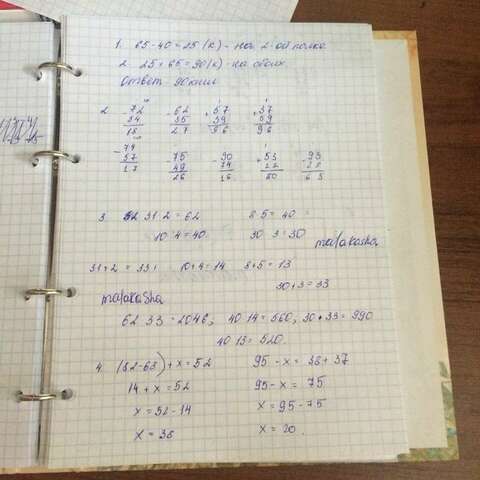 1. 65-40=25 (к) - на 2-ой полке
2. 25+65=90(к)-на обоих
Ответ 90 книг.
2. -72 -62 +37 +37
34 35 59 59
18 27 96 96
-74 -75 -90 +53 -93
57 49 74 22
17 26 16 80 65
3. 31 2=62 8 5=40
10 4=40. 30 3=30
malakasha
31+2=33; 10+4=14 8+5=13
30+3=33
malakasha
62 33=2046, 40 14=560, 30•33=990
40 13=520.
4. (82-68)+x=52 95-x=38+37
14+x=52 95-x=75
x=52-14 x=95-75
x=38 x=20.